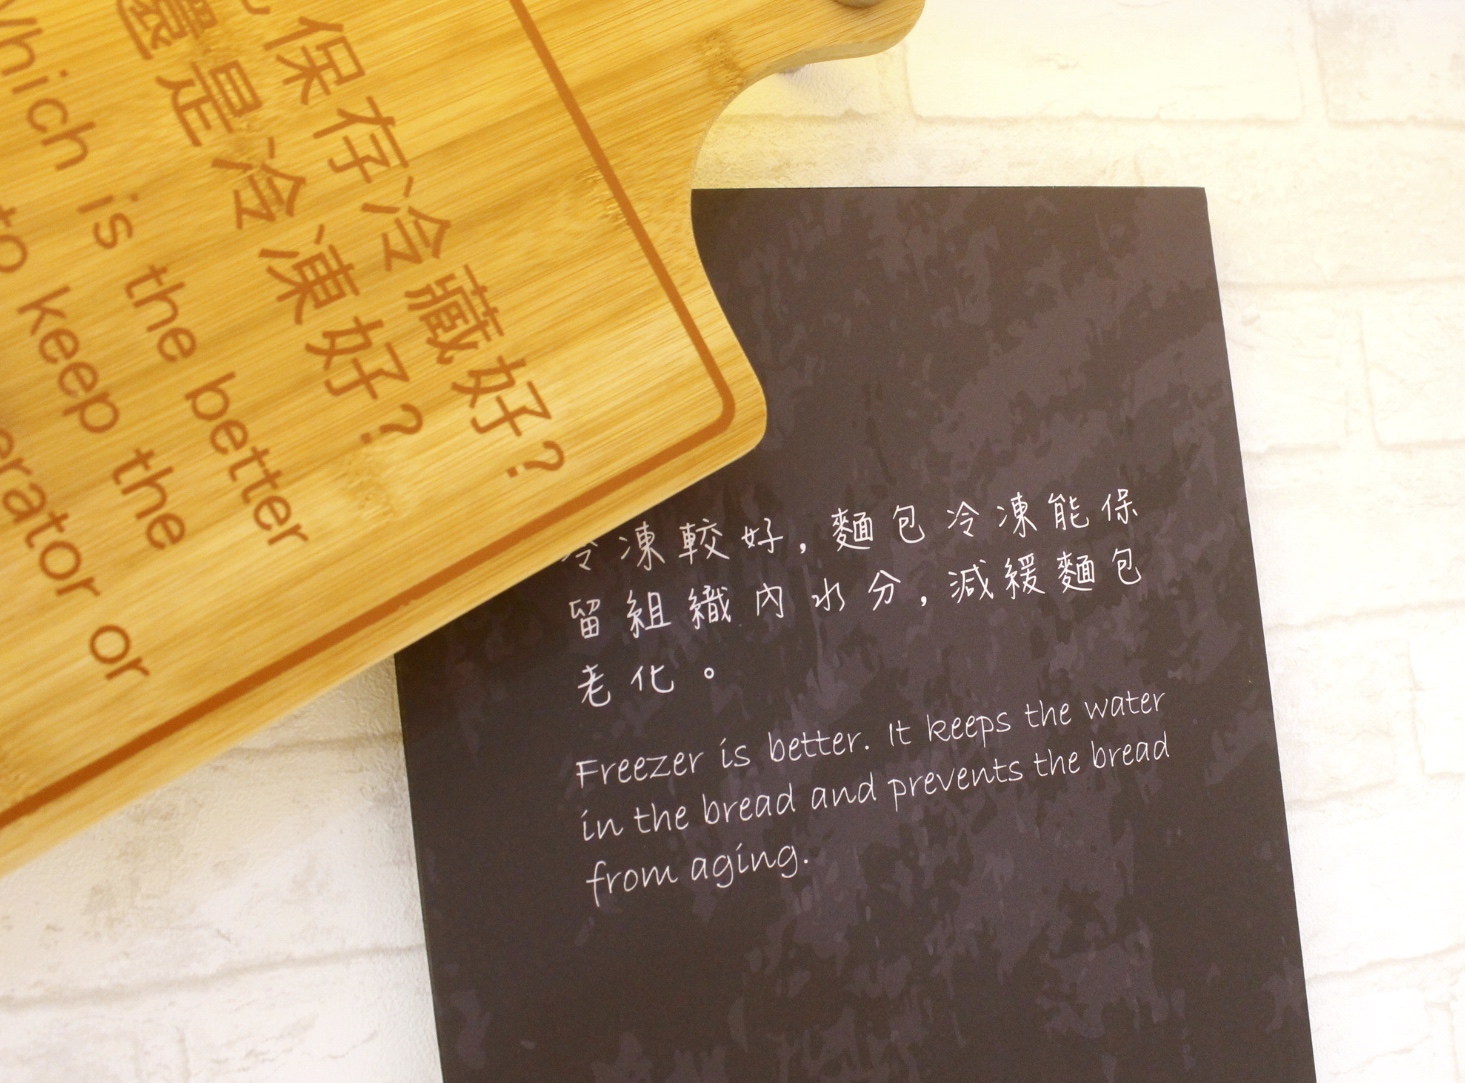 保存冷藏好?
還是冷凍好?
which is the better
to keep the
or
冷凍較好，麵包冷凍能保
留組織內水分，減緩麵包
老化。
Freezer is better. It keeps the water
in the bread and prevents the bread
from aging.